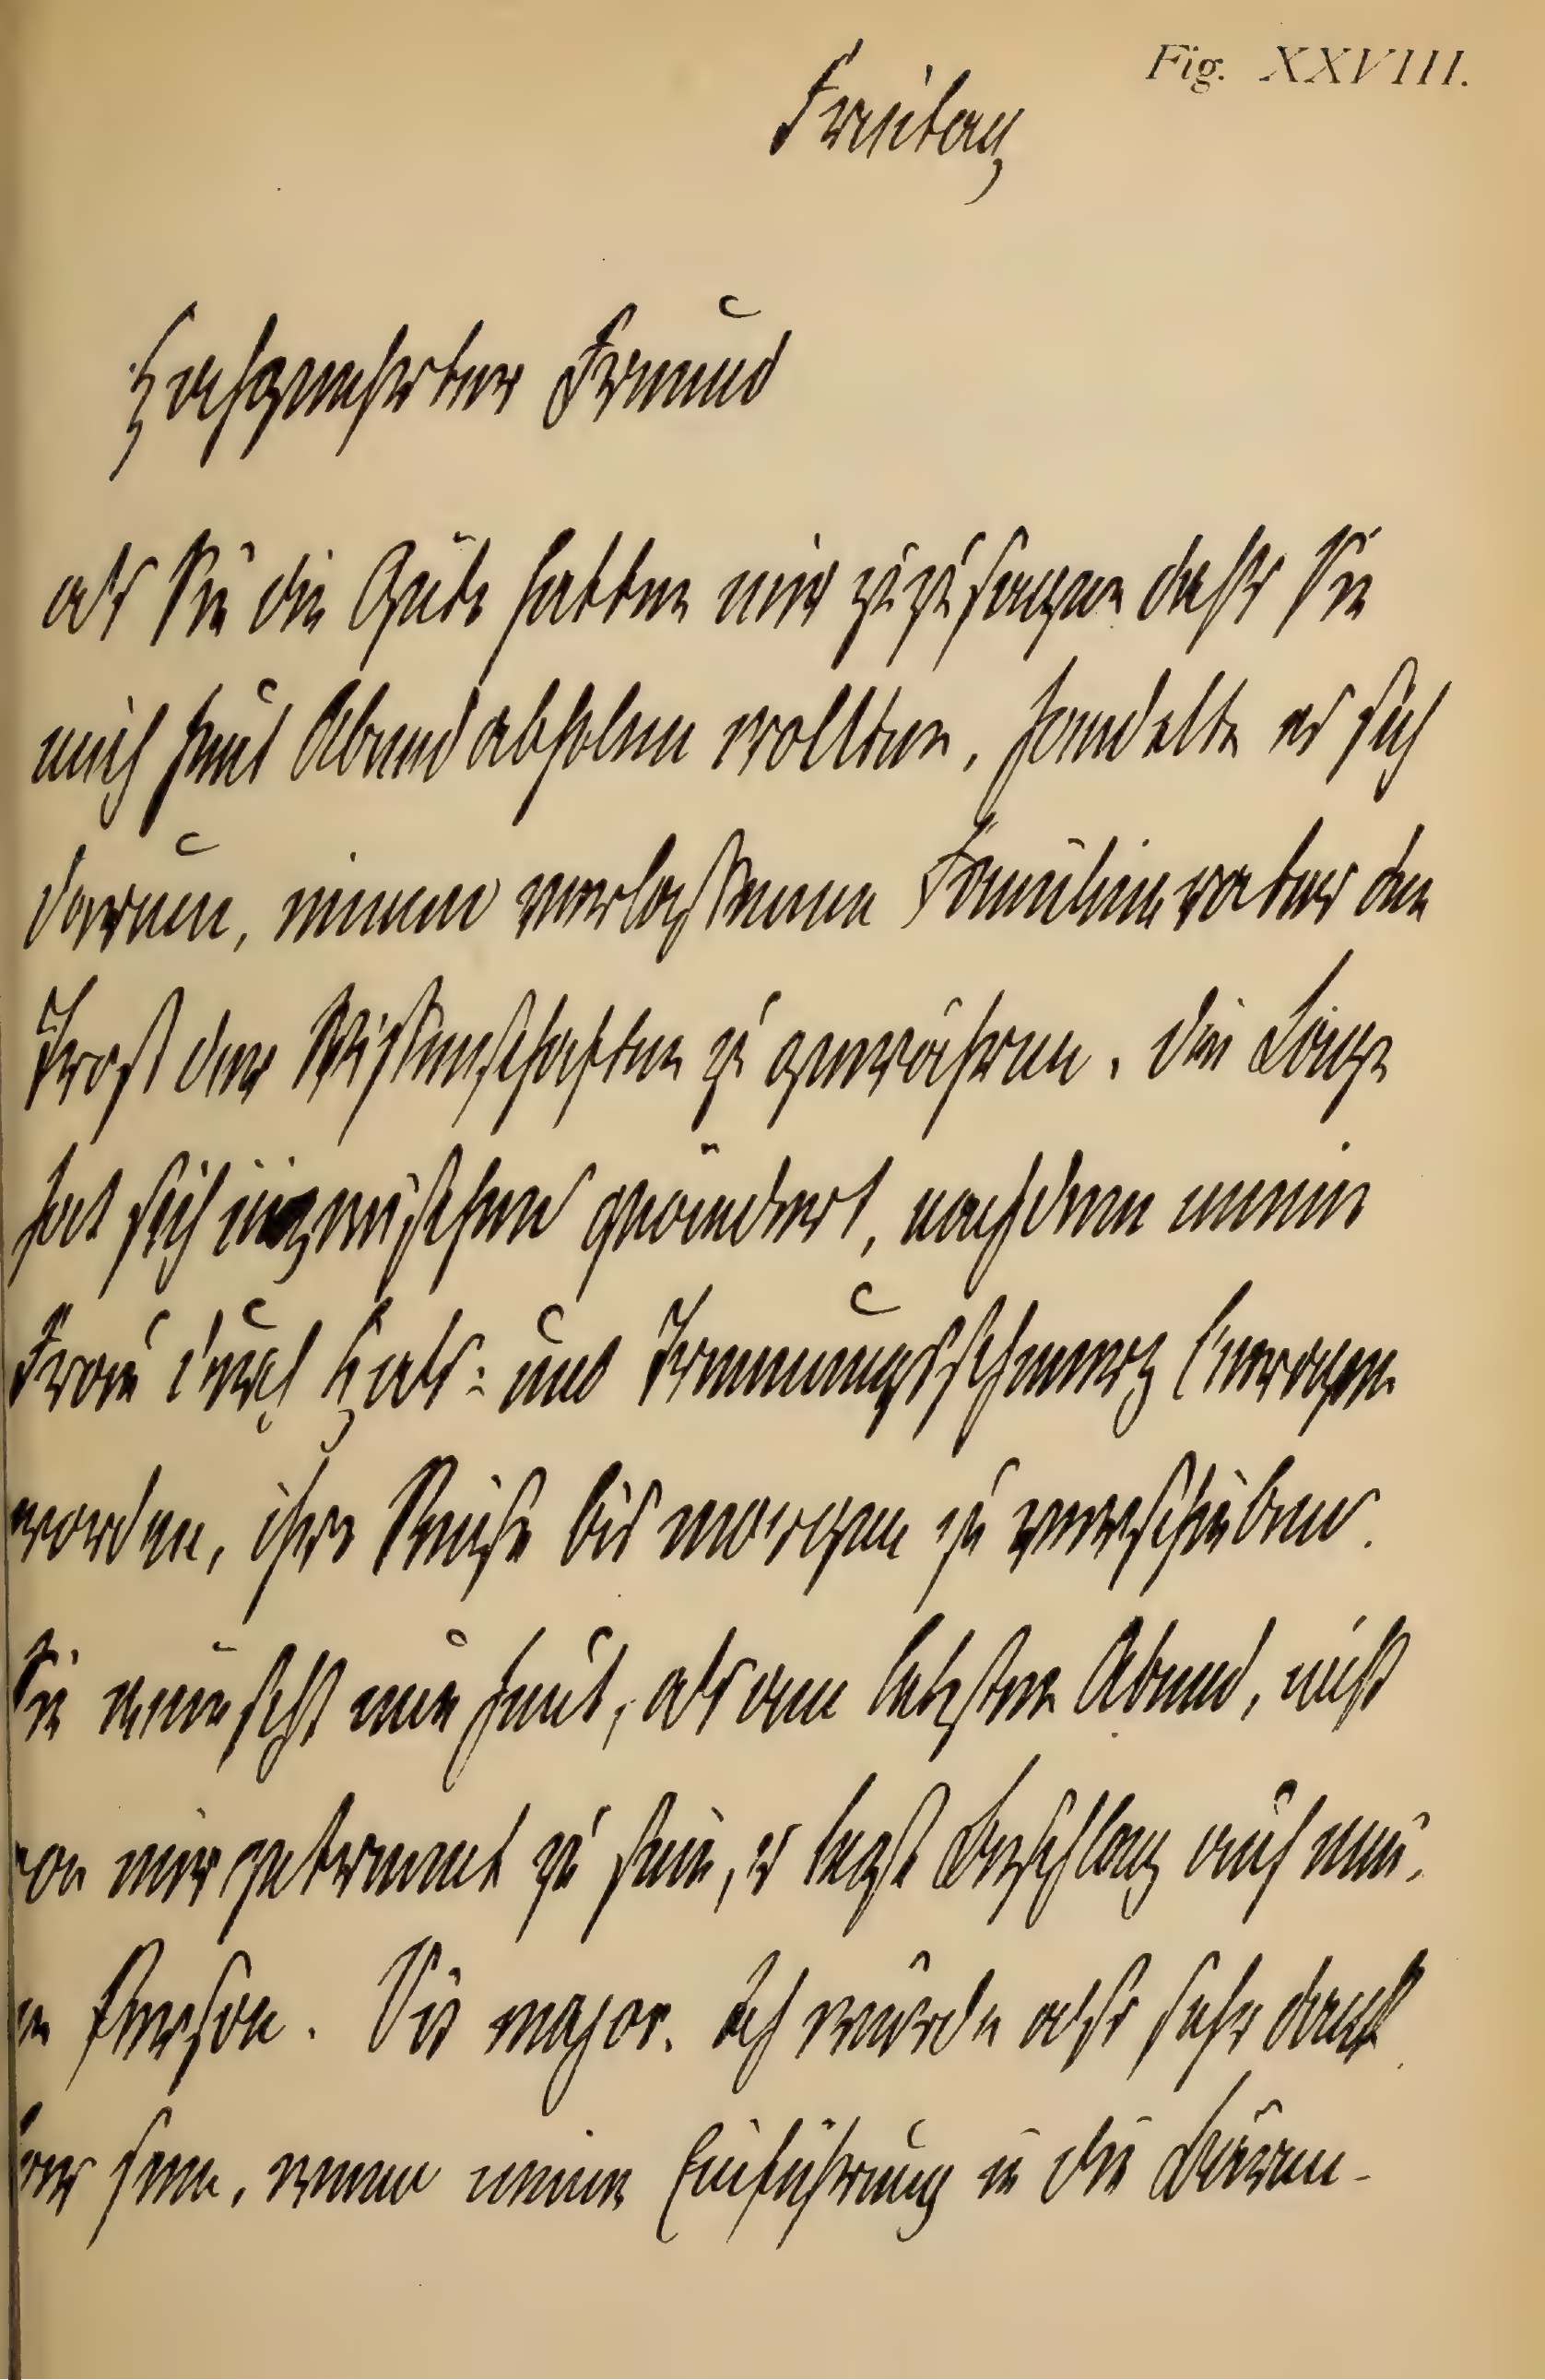 Fig. XXVIII.
Freitag
Hochgeehrter Freund
als Sie die Güte hatten mir zuzusagen dass Sie
mich heut Abend abholen wollten, handelte es sich
darum, einem verlassenen Familienvater den
Trost der Wissenschaften zu gewähren. Die Lage
hat sich inzwischen geändert, nachdem meine
Frau durch Hals- und Trennungsschmerz bewogen
worden, ihre Reise bis morgen zu verschieben.
Sie wünscht nun heut, als am letzten Abend, nicht
von mir getrennt zu sein, u legt Beschlag auf mei-
ne Person. Vis major. Ich würde also sehr dank
bar sein, wenn meine Einführung in die Bären-